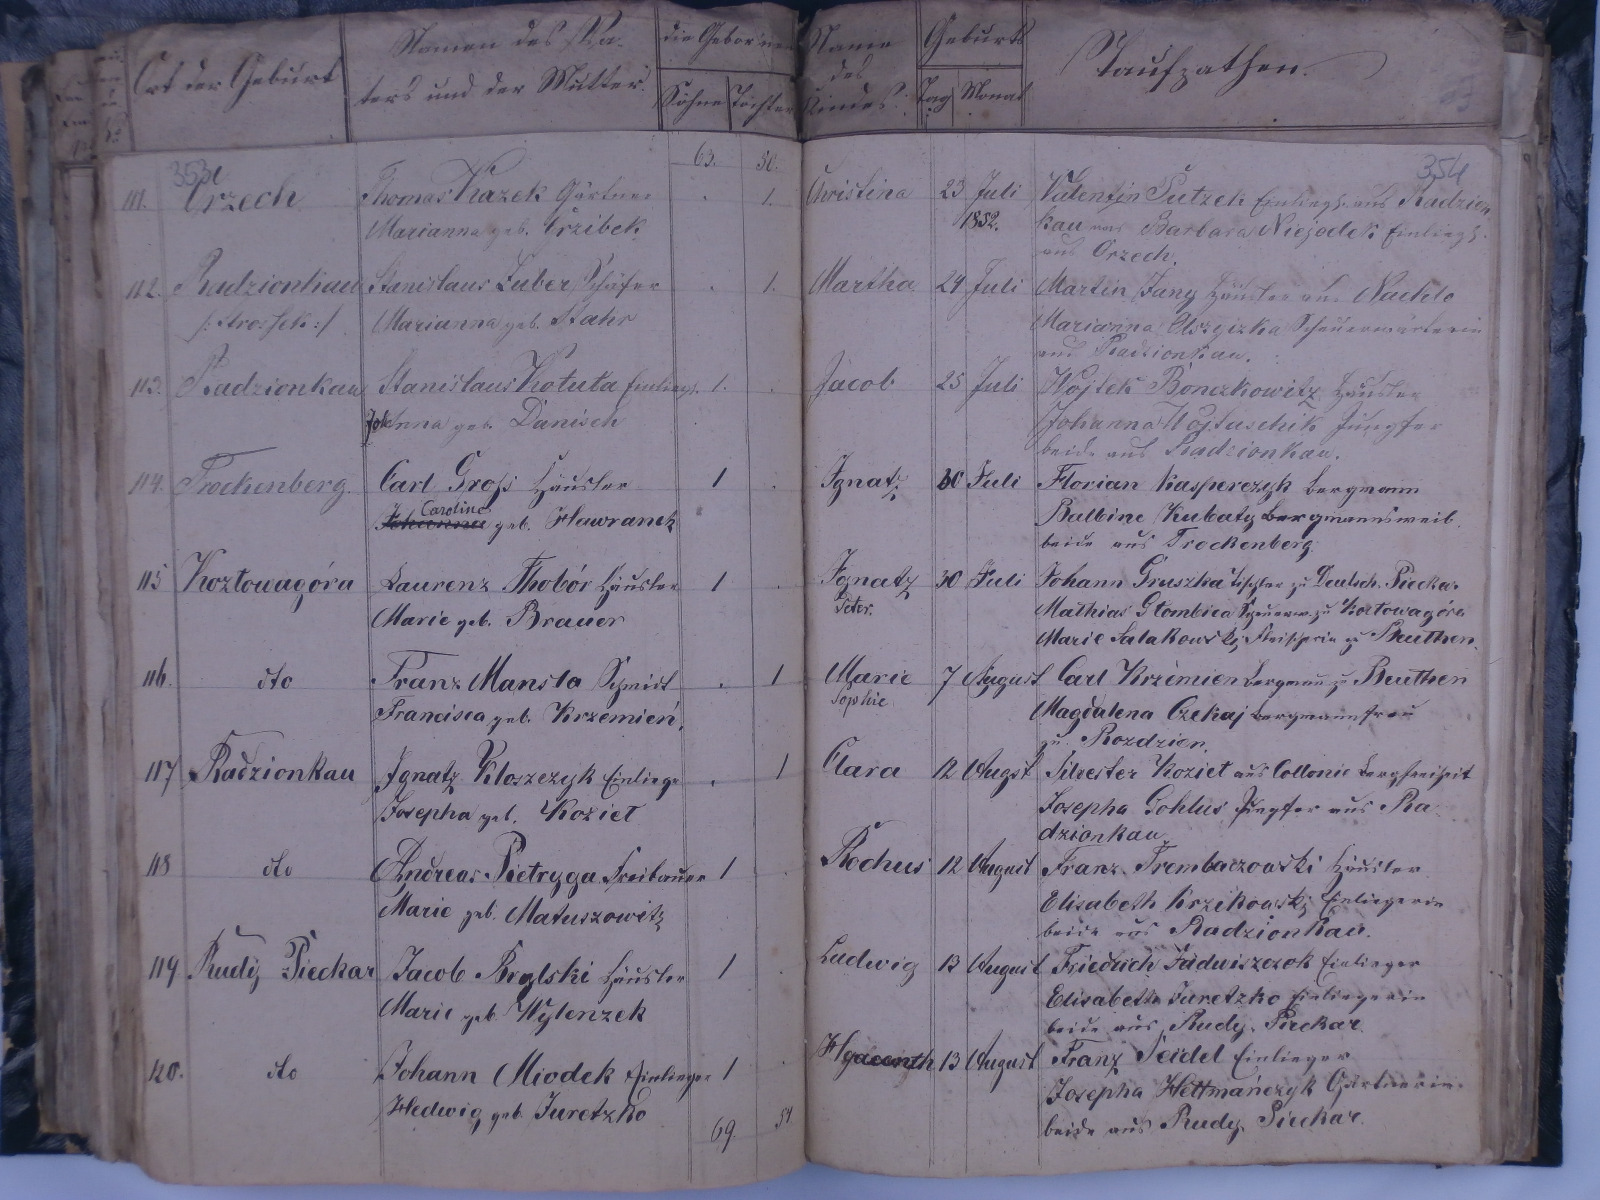 Ort der Geburt
Namen des Va-
ters und der Mutter.
die Gebornen
Söhne Töchter
Name
des
Kindes.
Geburts
Tag Monat
Taufpathen.
353
354
63. 50.
111. Orzech Thomas Kazek Gärtner . 1. Christina 23 Juli Valentin Putzek Einliegr. aus Radzion
Marianna geb. Grzibek 1852. kau und Barbara Niejodek Einliegr.
aus Orzech.
112. Radzionkau Stanislaus Luber Schäfer . 1. Martha 24 Juli Martin Jany Häusler aus Naklo
Marianna geb. Stahr Marianna Scheuerwärterin
aus Radzionkau.
113. Radzionkau Stanislaus Kotuta Einliegr. 1. . Jacob 25 Juli Wojtek Bonczkowitz Häusler
geb. Danisch Johanna Wojtaschik Jungfer
beide aus Radzionkau.
114. Trockenberg. Carl Gross Häusler 1 . Ignatz 30 Juli Florian Kasperczyk bergmann
Caroline
Johanna geb. Hawranek Balbine Kubatz bergmannsweib.
beide aus Trockenberg.
115 Kozłowagóra Laurenz Thobór Häusler 1 . Ignatz 30 Juli Johann Gruszka Tischler zu Deutsch. Piekar
Marie geb. Brauer Peter. Mathias Głombica zu Kozłowagóra
Marie Salakowski Fleischerin zu Beuthen.
116. dto Franz Mansla Schmidt . 1 Marie 7 August Carl Krzémien bergmann zu Beuthen
Francisca geb. Krzemień. Sophie Magdalena Czekaj bergmannfrau
zu Rozdzien.
117 Radzionkau Ignatz Kloszczyk Einlieger . 1 Clara 12 August Silvester Koziet aus Collonie Bergfreiheit
Josepha geb. Koziet Josepha Gohlus Jungfer aus Ra-
dzionkau
118 dto Andreas Pietryga Freibauer 1 . Rochus 12 August Franz Trembaczowski Häusler
Marie geb. Matuszowitz Elisabeth Krzikowski Einliegerin
beide aus Radzionkau.
119 Rudÿ Pieckar Jacob Häusler 1 . Ludwig 13 August Friedrich Jadwiszczok Einlieger
Marie geb. Wylenzek Elisabeth Juretzko Einliegerin
beide aus Rudy. Pieckar.
120. dto Johann Miodek Einlieger 1 . Hyacenth 13 August Franz Seidel Einlieger
Hedwig geb. Juretzko Josepha Hettmańczyk Gärtnerin
beide aus Rudy. Pieckar.
69. 51.